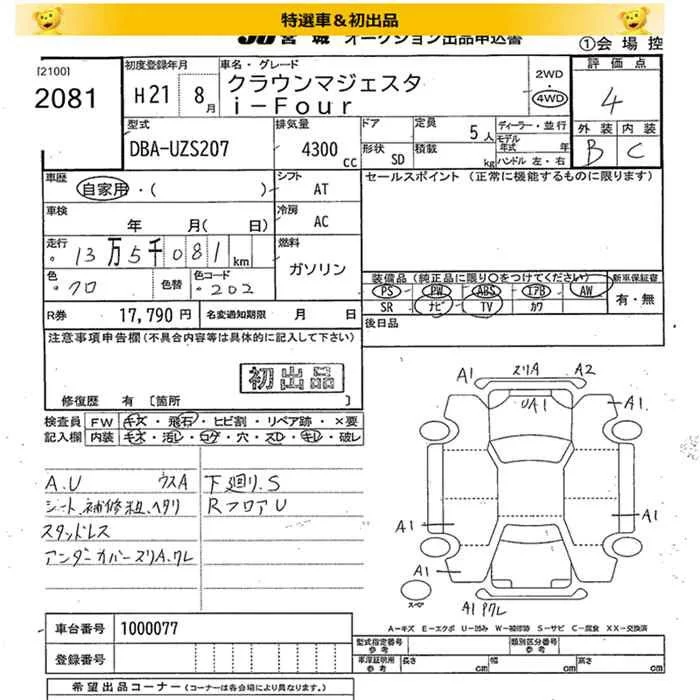 特選車&初出品
JU宮城 オークション出品申込書
①会場控
[2100]
2081
初度登録年月
H21 8月
車名・グレード
クラウンマジェスタ
i-Four
2WD
4WD
評価点
4
外装 内装
B C
型式
DBA-UZS207
排気量
4300cc
ドア
形状 SD
定員 5人
積載 kg
ディーラー・並行
モデル年式 年
ハンドル 左・右
車歴
自家用・( )
シフト
AT
セールスポイント(正常に機能するものに限ります)
車検
年 月( 日)
冷房
AC
走行
13万5千081km
燃料
ガソリン
色
クロ
色替
色コード
202
装備品(純正品に限り○をつけてください) 新車保証書
PS PW ABS エアB AW 有・無
SR ナビ TV カワ
R券 17,790円 名変通知期限 月 日
後日品
注意事項申告欄(不具合内容等は具体的に記入して下さい)
初出品
修復歴 有 [箇所 ]
検査員 FW キズ・飛石・ヒビ割・リペア跡・×要
記入欄 内装 キズ・汚レ・コゲ・穴・スレ・キレ・破レ
A.U ウスA
シート、補修粗、ヘタリ
スタッドレス
アンダーカバースリA、ワレ
下廻リ.S
RフロアU
A1 スリA A2
UA1
A1
A1
A1
A1
A1
A1 ワレ
スペア
A-キズ E-エクボ U-凹み W-補修跡 S-サビ C-腐食 XX-交換済
車台番号 1000077
登録番号
型式指定番号 参考
類別区分番号 参考
車庫証明用 参考 長さ cm 幅 cm 高さ cm
希望出品コーナー(コーナーは各会場により異なります。)